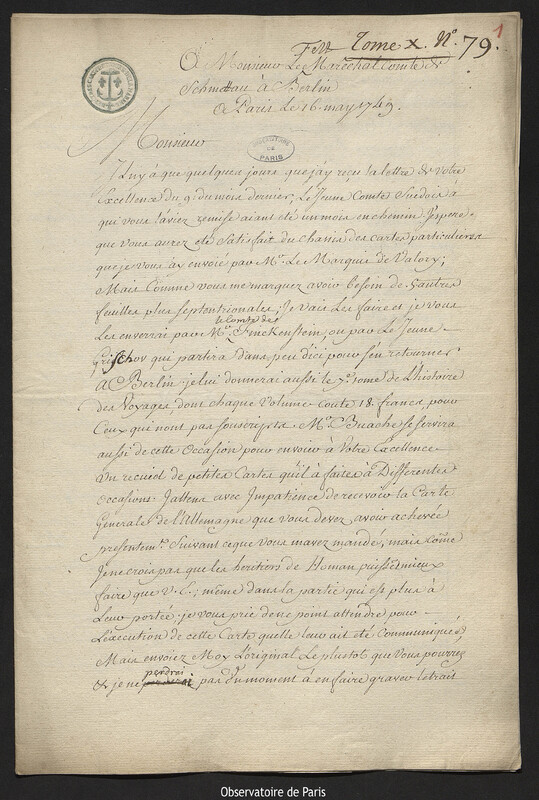 Tome X. N.º 79. 1
A Monsieur Le Maréchal Comte de
Schmettau à Berlin
A Paris le 16. may 1749.
OBSERVATOIRE DE PARIS
Monsieur
Il n'y à que quelques jours que j'ay reçu la lettre de Votre
Excellence du 9. du mois dernier, Le Jeune Comte Suedois à
qui vous l'aviez remise aiant eté un mois en chemin. J'espere
que vous aurez eté Satisfait du chassis des cartes particulieres
que je vous ay envoié par M.r Le Marquis de Valory;
Mais Comme vous me marquez avoir besoin de 5 autres
feuilles plus septentrionales, Je vais Les faire et je vous
Les enverrai par M.r le Comte de Finckenstein, ou par Le Jeune
Grischov qui partira dans peu d'ici pour s'en retourner
A Berlin je lui donnerai aussi le 7.e tome de L'histoire
des Voyages, dont chaque Volume coute 18. francs, pour
Ceux qui n'ont pas souscripts. M.r Buache se servira
aussi de cette Occasion pour envoier à Votre Excellence
Un recueil de petites Cartes qu'il à faites à Differentes
Occasions. J'attens avec Impatience de recevoir la Carte
Generale de l'Allemagne que vous devez avoir achevée
presentem.t Suivant ce que vous m'avez mandé, mais co͞me
Je ne crois pas que les heritiers de Homan puissent mieux
faire que V. E. même dans la partie qui est plus à
Leur portée. je vous prie de ne point attendre pour
L'execution de cette Carte quelle leur ait eté Communiqueé,
Mais envoiez Moy L'original Le plustot que Vous pourrez
& je ne perdrai pas du moment à en faire graver le trait
Observatoire de Paris